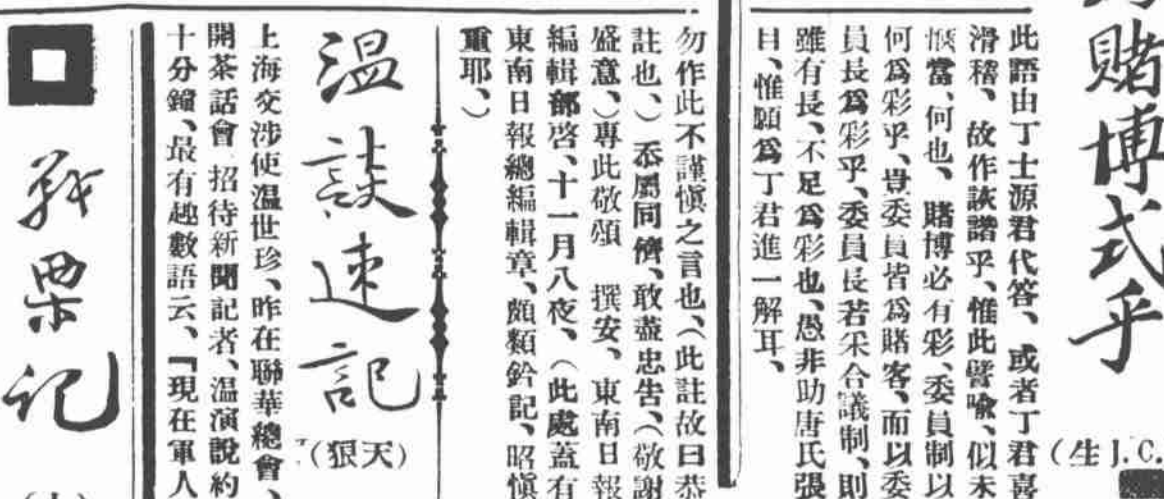 賭博式乎
(生J.C.
此語由丁士源君代答、或者丁君喜
滑稽、故作詼諧乎、惟此譬喻、似未
愜當、何也、賭博必有彩、委員制以
何爲彩乎、豈委員皆爲賭客、而以委
員長爲彩乎、委員長若采合議制、則
雖有長、不足爲彩也、愚非助唐氏張
目、惟願爲丁君進一解耳、
勿作此不謹愼之言也、(此註故曰恭
註也、)忝屬同儕、敢盡忠告、(敬謝
盛意、)專此敬頌 撰安、東南日報
編輯部啓、十一月八夜、(此處蓋有
東南日報總編輯章、頗類鈐記、昭愼
重耶、)
溫談速記
(狠天)
上海交涉使溫世珍、昨在聯華總會、
開茶話會、招待新聞記者、溫演說約
十分鐘、最有趣數語云、「現在軍人
戰栗记